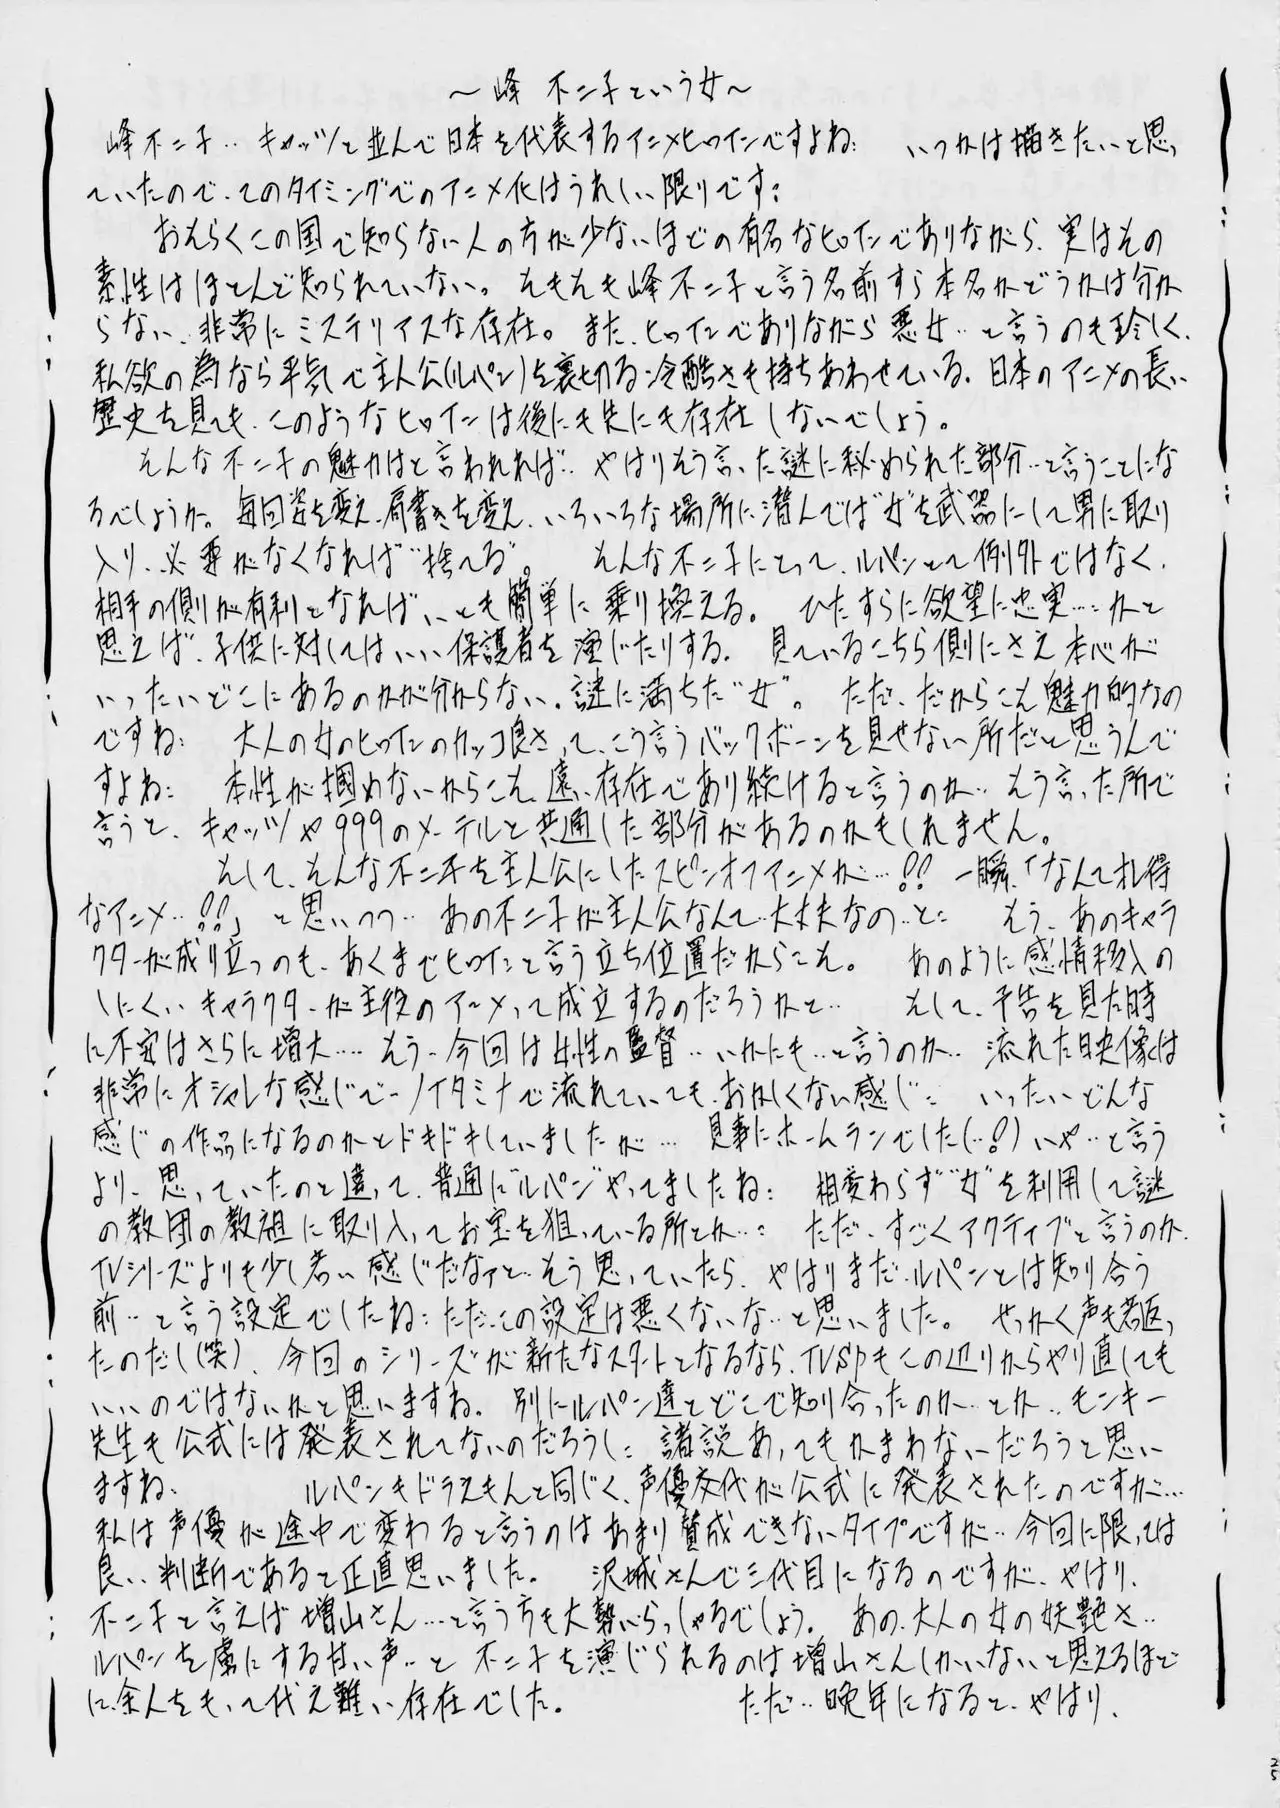 ～峰 不二子という女～
峰不二子‥キャッツと並んで日本を代表するアニメヒロインですよね: いつかは描きたいと思っ
ていたので、このタイミングでのアニメ化はうれしい限りです:
おそらくこの国で知らない人の方が少ないほどの有名なヒロインでありながら、実はその
素性はほとんど知られていない。そもそも峰不二子と言う名前すら本名かどうかは分か
らない、非常にミステリアスな存在。また、ヒロインでありながら悪女‥と言うのも珍しく、
私欲の為なら平気で主人公(ルパン)を裏切る冷酷さも持ちあわせている。日本のアニメの長い
歴史を見ても、このようなヒロインは後にも先にも存在しないでしょう。
そんな不二子の魅力はと言われれば‥やはりそう言った謎に秘められた部分‥と言うことにな
るでしょうか。毎回姿を変え、肩書きを変え、いろいろな場所に潜んでは"女"を武器にして男に取り
入り、必要がなくなれば"捨てる"。 そんな不二子にとって、ルパンとて例外ではなく、
相手の側が有利となれば、いとも簡単に乗り換える。 ひたすらに欲望に忠実…:かと
思えば、子供に対してはいい保護者を演じたりする。 見ているこちら側にさえ本心が
いったいどこにあるのかが分からない、謎に満ちた"女"。 ただ、だからこそ魅力的なの
ですね: 大人の女のヒロインのカッコ良さって、こう言うバックボーンを見せない所だと思うんで
すよね: 本性が掴めないからこそ、遠い存在であり続けると言うのか‥そう言った所で
言うと、キャッツや999のメーテルと共通した部分があるのかもしれません。
そして、そんな不二子を主人公にしたスピンオフアニメが…!! 一瞬、「なんて札得
なアニメ‥!!」と思いつつ‥あの不二子が主人公なんて‥大丈夫なの‥と: もう、あのキャラ
クターが成り立つのも、あくまでヒロインと言う立ち位置だからこそ。 あのように感情移入の
しにくいキャラクターが主役のアニメって成立するのだろうかと‥ そして、予告を見た時
に不安はさらに増大‥‥そう‥今回は女性の監督‥いかにも‥と言うのか‥流れた映像は
非常にオシャレな感じで‥ノイタミナで流れていても、おかしくない感じ: いったいどんな
感じの作品になるのかとドキドキしていましたが… 見事にホームランでした(‥!)いや‥と言う
より、思っていたのと違って、普通に"ルパン"やってましたね: 相変わらず"女"を利用して謎
の教団の教祖に取り入ってお宝を狙っている所とか…: ただ、すごくアクティブと言うのか、
TVシリーズよりも少し若い感じだなァと‥そう思っていたら、やはりまだ、ルパンとは知り合う
前‥と言う設定でしたね:ただ、この設定は悪くないな‥と思いました。 せっかく声も若返っ
たのだし(笑)、今回のシリーズが新たなスタートとなるなら、TVSPもこの辺りからやり直しても
いいのではないかと思いますね。別にルパン達とどこで知り合ったのか‥とか‥モンキー
先生も公式には発表されてないのだろうし: 諸説あってもかまわないだろうと思い
ますね。 ルパンもドラえもんと同じく、声優交代が公式に発表されたのですが…
私は声優が途中で変わると言うのはあまり賛成できないタイプですが‥今回に限っては
良い判断であると正直思いました。 沢城さんで三代目になるのですが、やはり、
不二子と言えば増山さん…と言う方も大勢いらっしゃるでしょう。 あの、大人の女の妖艶さ‥
ルパンを虜にする甘い声‥と 不二子を演じられるのは増山さんしかいないと思えるほど
に、余人をもって代え難い存在でした。 ただ‥晩年になると、やはり、